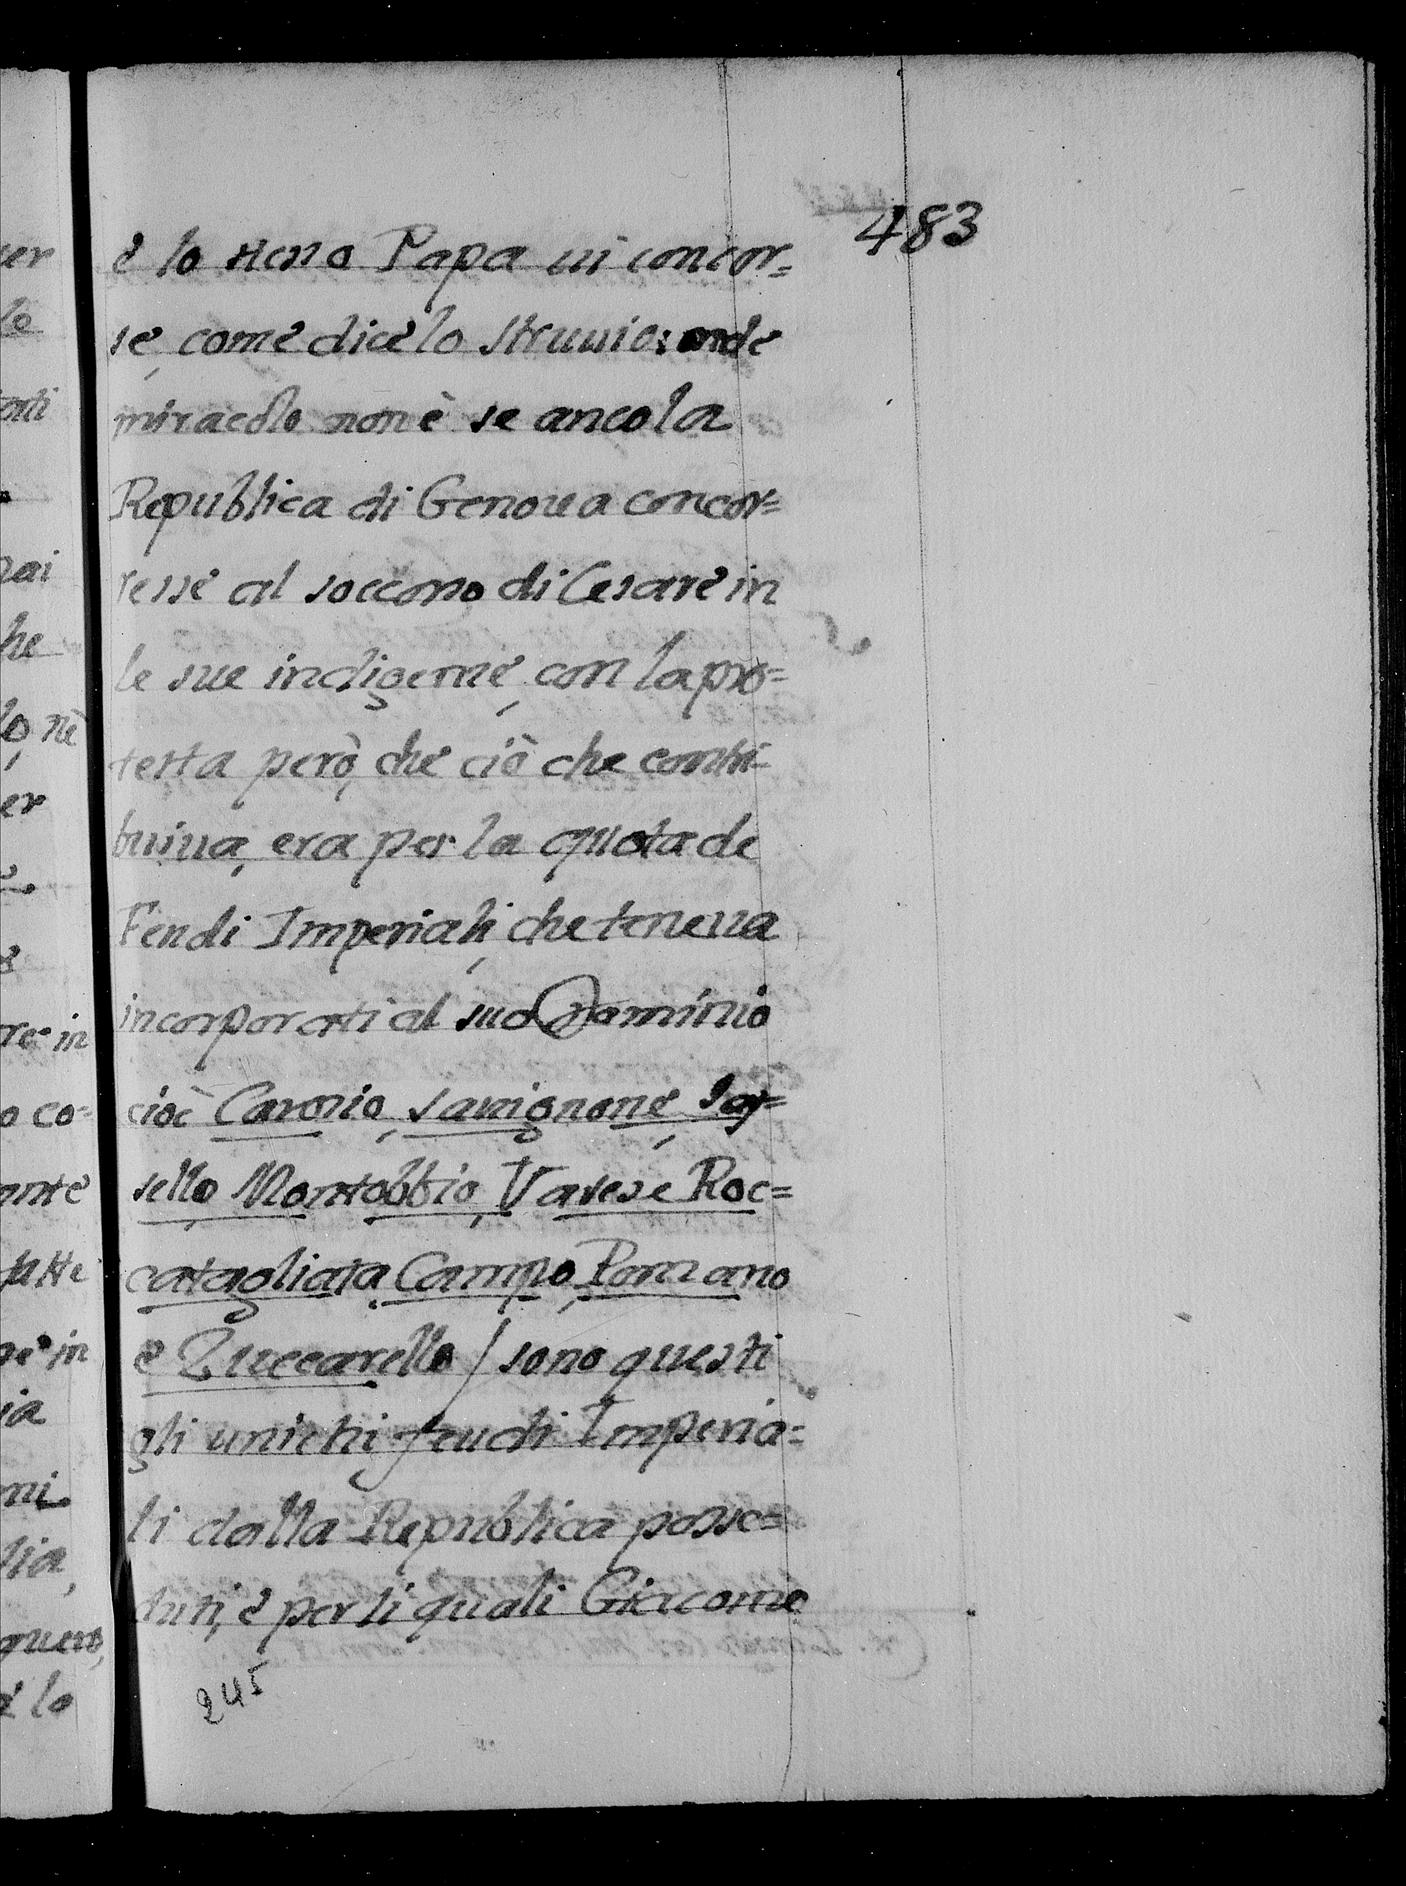 483
è lo stesso Papa ui concor=
se, come dice lo Struuio: onde
miracolo non è se anco la
Republica di Genoua concor=
resse al soccorso di Cesare in
le sue indigenze, con la pro=
testa però, che ciò che contri=
buiua, era per la quota de
Feudi Imperiali, che teneua
incorporati al suo Dominio
cioè Carosio, Sauignone, Bor=
sello Montobbio, Varese Roc=
catagliata Campo, Ponzano
e Zuccarello / sono questi
gli unichi feudi Imperia=
li dalla Republica posse=
duti, e per li quali Giacomo
245